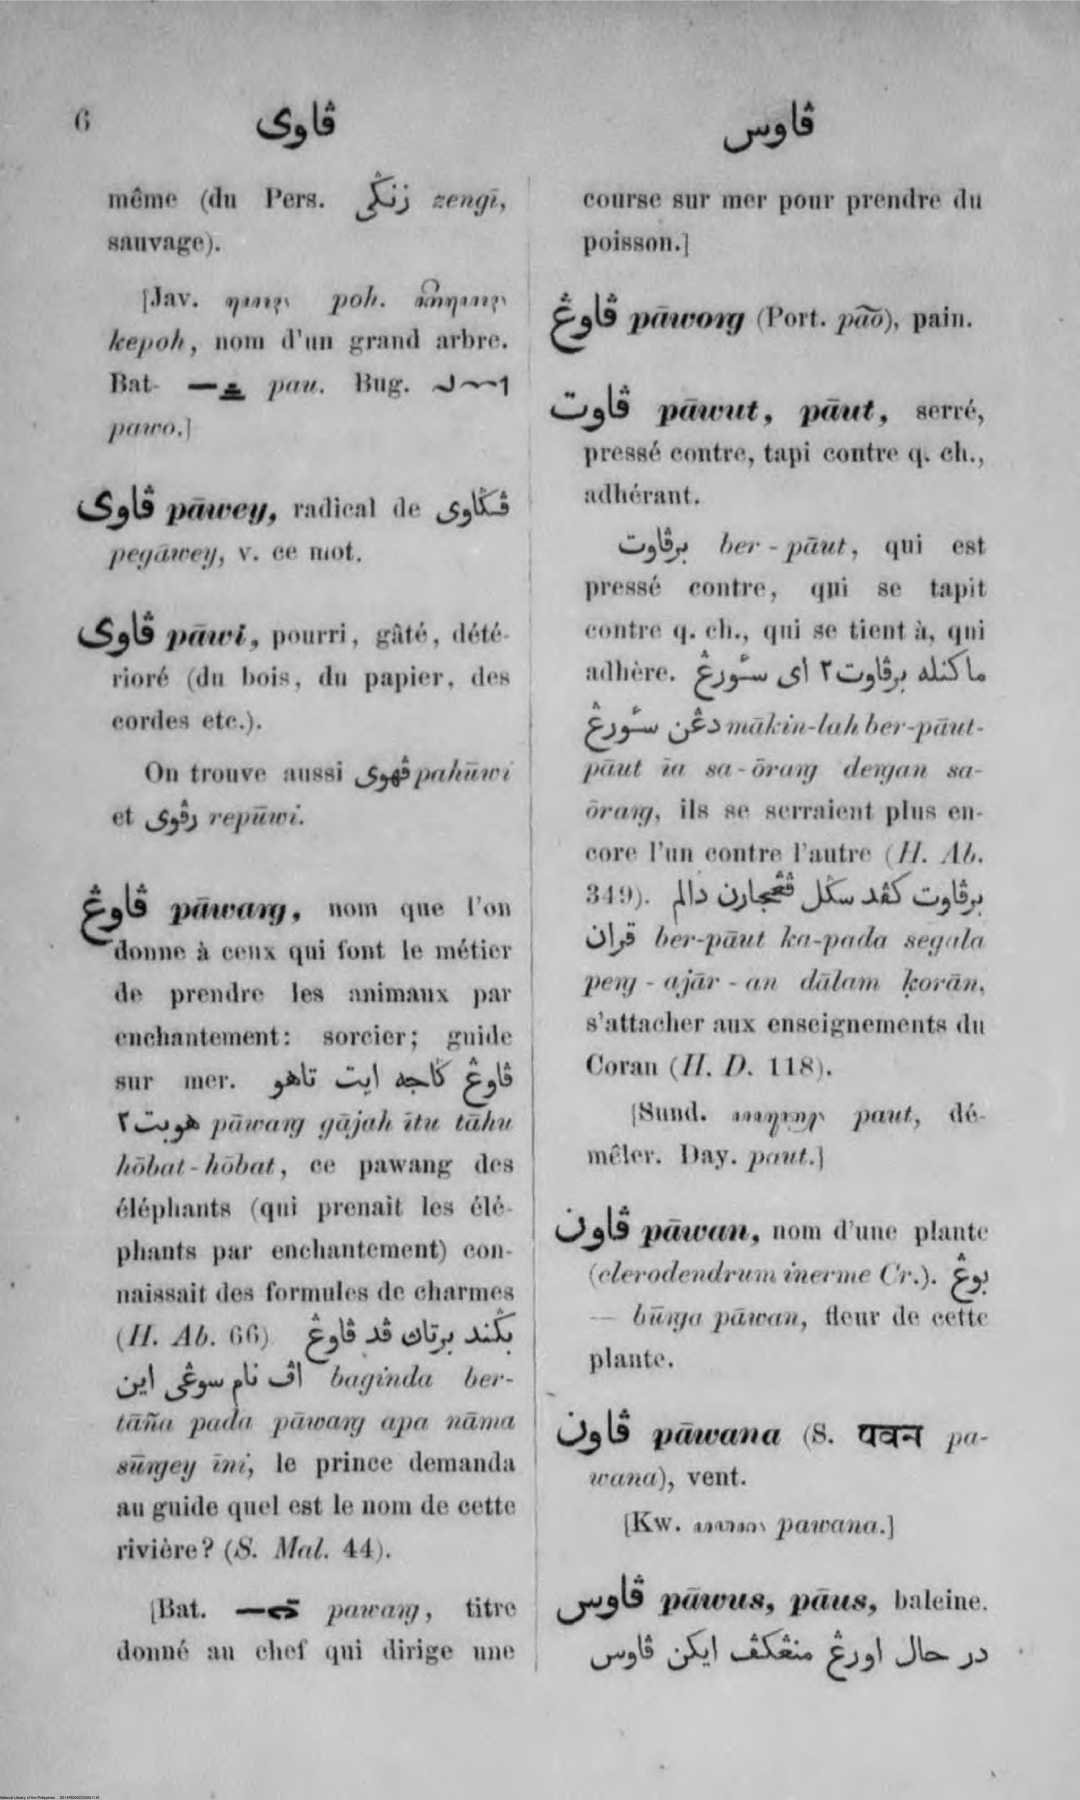 6
ڤاوى
ڤاوس
même (du Pers. زنڬى zengī,
sauvage).
[Jav. poh.
kepoh, nom d'un grand arbre.
Bat- pau. Bug.
pawo.]
ڤاوى pāwey, radical de ڤڬاوى
pegāwey, v. ce mot.
ڤاوى pāwi, pourri, gâté, dété-
rioré (du bois, du papier, des
cordes etc.).
On trouve aussi ڤهوى pahūwi
et رڤوى repūwi.
ڤاوڠ pāwaṅg, nom que l'on
donne à ceux qui font le métier
de prendre les animaux par
enchantement: sorcier; guide
sur mer. ڤاوڠ ڬاجه ايت تاهو
هوبت٢ pāwaṅg gājah ītu tāhu
hōbat-hōbat, ce pawang des
éléphants (qui prenait les élé-
phants par enchantement) con-
naissait des formules de charmes
(H. Ab. 66) بڬند برتاڽ ڤد ڤاوڠ
اڤ نام سوڠى اين baginda ber-
tāña pada pāwaṅg apa nāma
sūṅgey īni, le prince demanda
au guide quel est le nom de cette
rivière? (S. Mal. 44).
[Bat. pawaṅg, titre
donné au chef qui dirige une
course sur mer pour prendre du
poisson.]
ڤاوڠ pāwoṅg (Port. pão), pain.
ڤاوت pāwut, pāut, serré,
pressé contre, tapi contre q. ch.,
adhérant.
برڤاوت ber-pāut, qui est
pressé contre, qui se tapit
contre q. ch., qui se tient à, qui
adhère. ماكنله برڤاوت٢ اى سـٔورڠ
دڠن سـٔورڠ mākin-lah ber-pāut-
pāut īa sa-ōraṅg deṅgan sa-
ōraṅg, ils se serraient plus en-
core l'un contre l'autre (H. Ab.
349). برڤاوت كڤد سڬل ڤڠجارن دالم
قران ber-pāut ka-pada segala
peṅg-ajār-an dālam ḳorān,
s'attacher aux enseignements du
Coran (H. D. 118).
[Sund. paut, dé-
mêler. Day. paut.]
ڤاون pāwan, nom d'une plante
(clerodendrum inerme Cr.). بوڠ
— būṅga pāwan, fleur de cette
plante.
ڤاون pāwana (S. पवन pa-
wana), vent.
[Kw. pawana.]
ڤاوس pāwus, pāus, baleine.
در حال اورڠ منڠكڤ ايكن ڤاوس